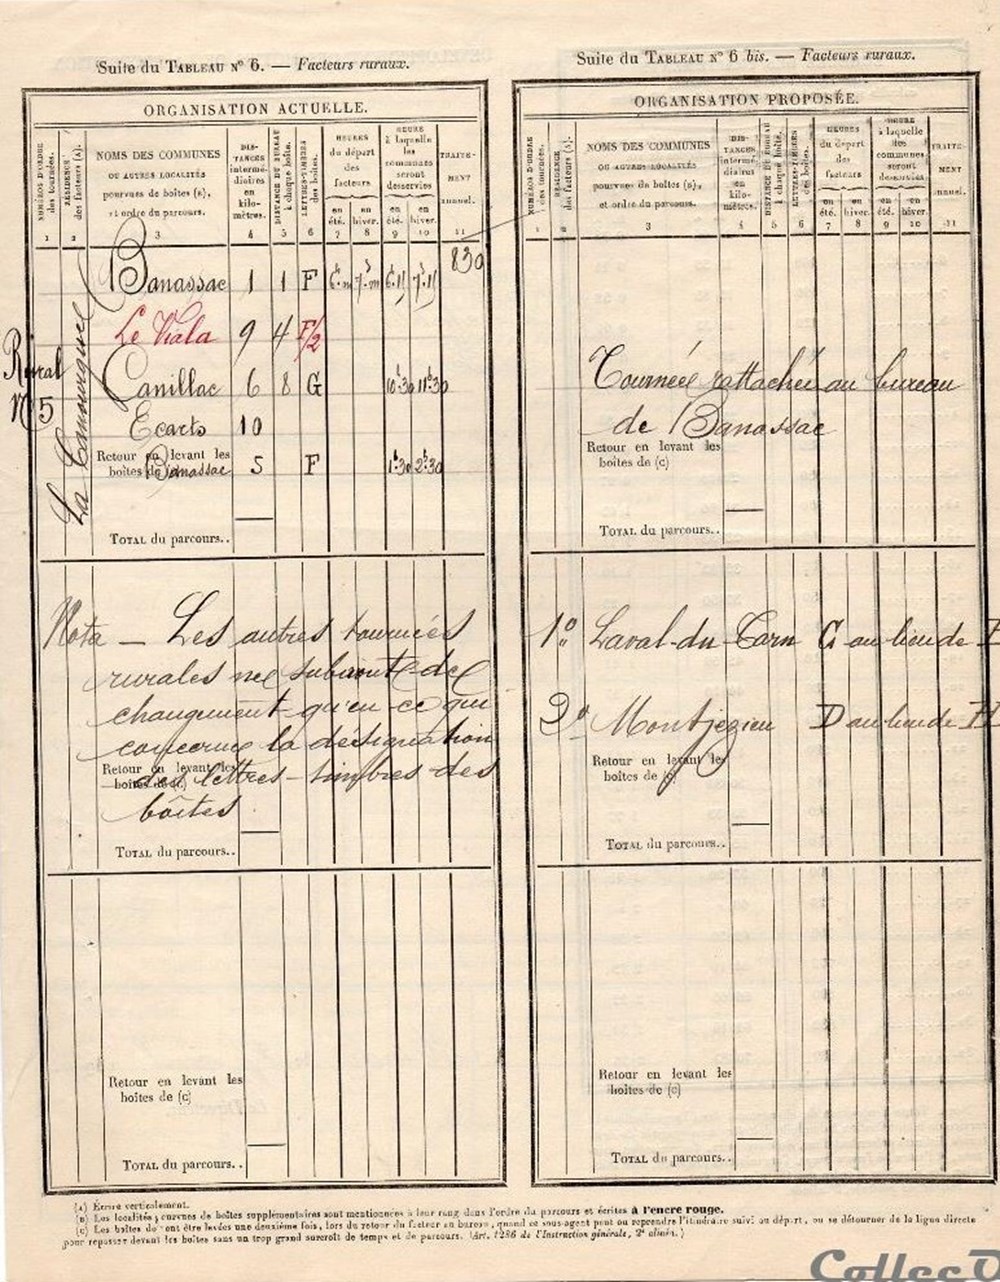 Suite du TABLEAU N° 6. — Facteurs ruraux.
ORGANISATION ACTUELLE.
NUMÉROS D'ORDRE des tournées.
RÉSIDENCE des facteurs (A).
NOMS DES COMMUNES
OU AUTRES LOCALITÉS
pourvues de boîtes (B),
et ordre du parcours.
DIS-
TANCES
intermé-
diaires
en
kilo-
mètres.
DISTANCE DU BUREAU à chaque boîte.
LETTRES-TIMBRES des boîtes.
HEURES
du départ
des
facteurs
en été.
en hiver.
HEURE
à laquelle
les
communes
seront
desservies
en été.
en hiver.
TRAITE-
MENT
annuel.
1 2 3 4 5 6 7 8 9 10 11
830
Rural
N° 5
La Canourgue
Banassac 1 1 F
Le Viala 9 4 F/2
Canillac 6 8 G 10h30 11h30
Ecarts 10
Retour en levant les
boîtes de Banassac 5 F 1h30 2h30
TOTAL du parcours..
Nota — Les autres tournées
rurales ne subiront de
changement qu'en ce qui
concerne la désignation
Retour en levant les
boîtes de (c)
des lettres-timbres des
boîtes.
TOTAL du parcours..
Retour en levant les
boîtes de (c)
TOTAL du parcours..
Suite du TABLEAU N° 6 bis. — Facteurs ruraux.
ORGANISATION PROPOSÉE.
NUMÉROS D'ORDRE des tournées.
RÉSIDENCE des facteurs (A).
NOMS DES COMMUNES
OU AUTRES LOCALITÉS
pourvues de boîtes (B),
et ordre du parcours.
DIS-
TANCES
intermé-
diaires
en
kilo-
mètres.
DISTANCE DU BUREAU à chaque boîte.
LETTRES-TIMBRES des boîtes.
HEURES
du départ
des
facteurs
en été.
en hiver.
HEURE
à laquelle
les
communes
seront
desservies
en été.
en hiver.
TRAITE-
MENT
annuel.
1 2 3 4 5 6 7 8 9 10 11
Tournée rattachée au bureau
de Banassac
Retour en levant les
boîtes de (c)
TOTAL du parcours..
1° Laval-du-Tarn G au lieu de
2° Montjézieu D au lieu de H
Retour en levant les
boîtes de (c)
TOTAL du parcours..
Retour en levant les
boîtes de (c)
TOTAL du parcours..
(A) Écrire verticalement.
(B) Les localités pourvues de boîtes supplémentaires sont mentionnées à leur rang dans l'ordre du parcours et écrites à l'encre rouge.
(C) Les boîtes doivent être levées une deuxième fois, lors du retour du facteur au bureau, quand ce sous-agent peut ou reprendre l'itinéraire suivi au départ, ou se détourner de la ligne directe
pour repasser devant les boîtes sans un trop grand surcroît de temps et de parcours. (Art. 1286 de l'Instruction générale, 2e alinéa.)